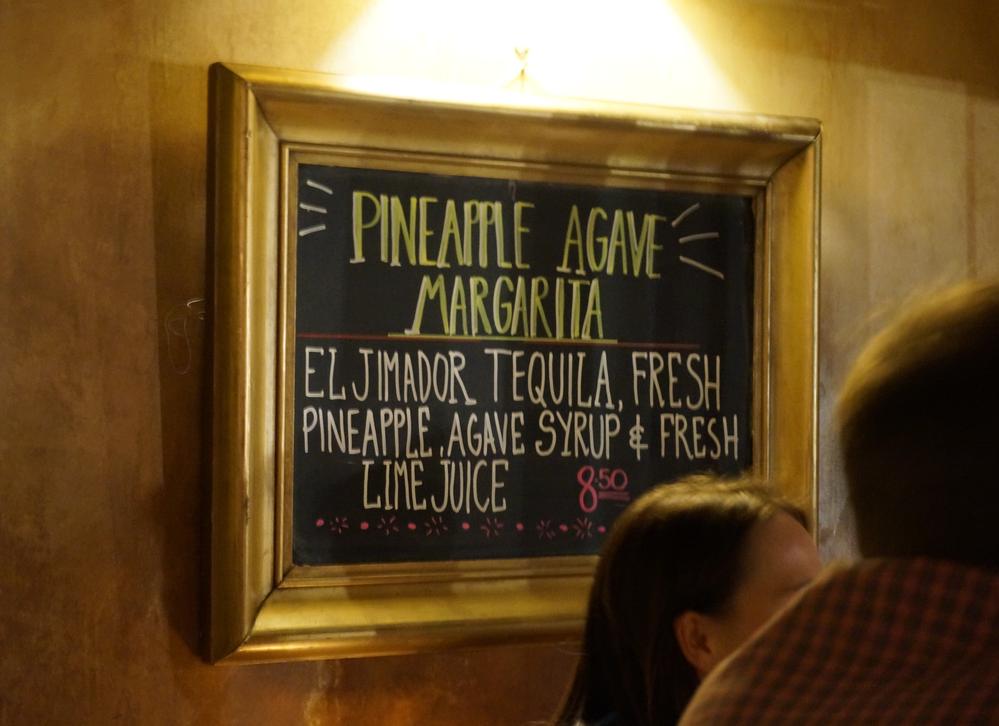 PINEAPPLE AGAVE
MARGARITA
EL JIMADOR TEQUILA, FRESH
PINEAPPLE, AGAVE SYRUP & FRESH
LIME JUICE 8.50